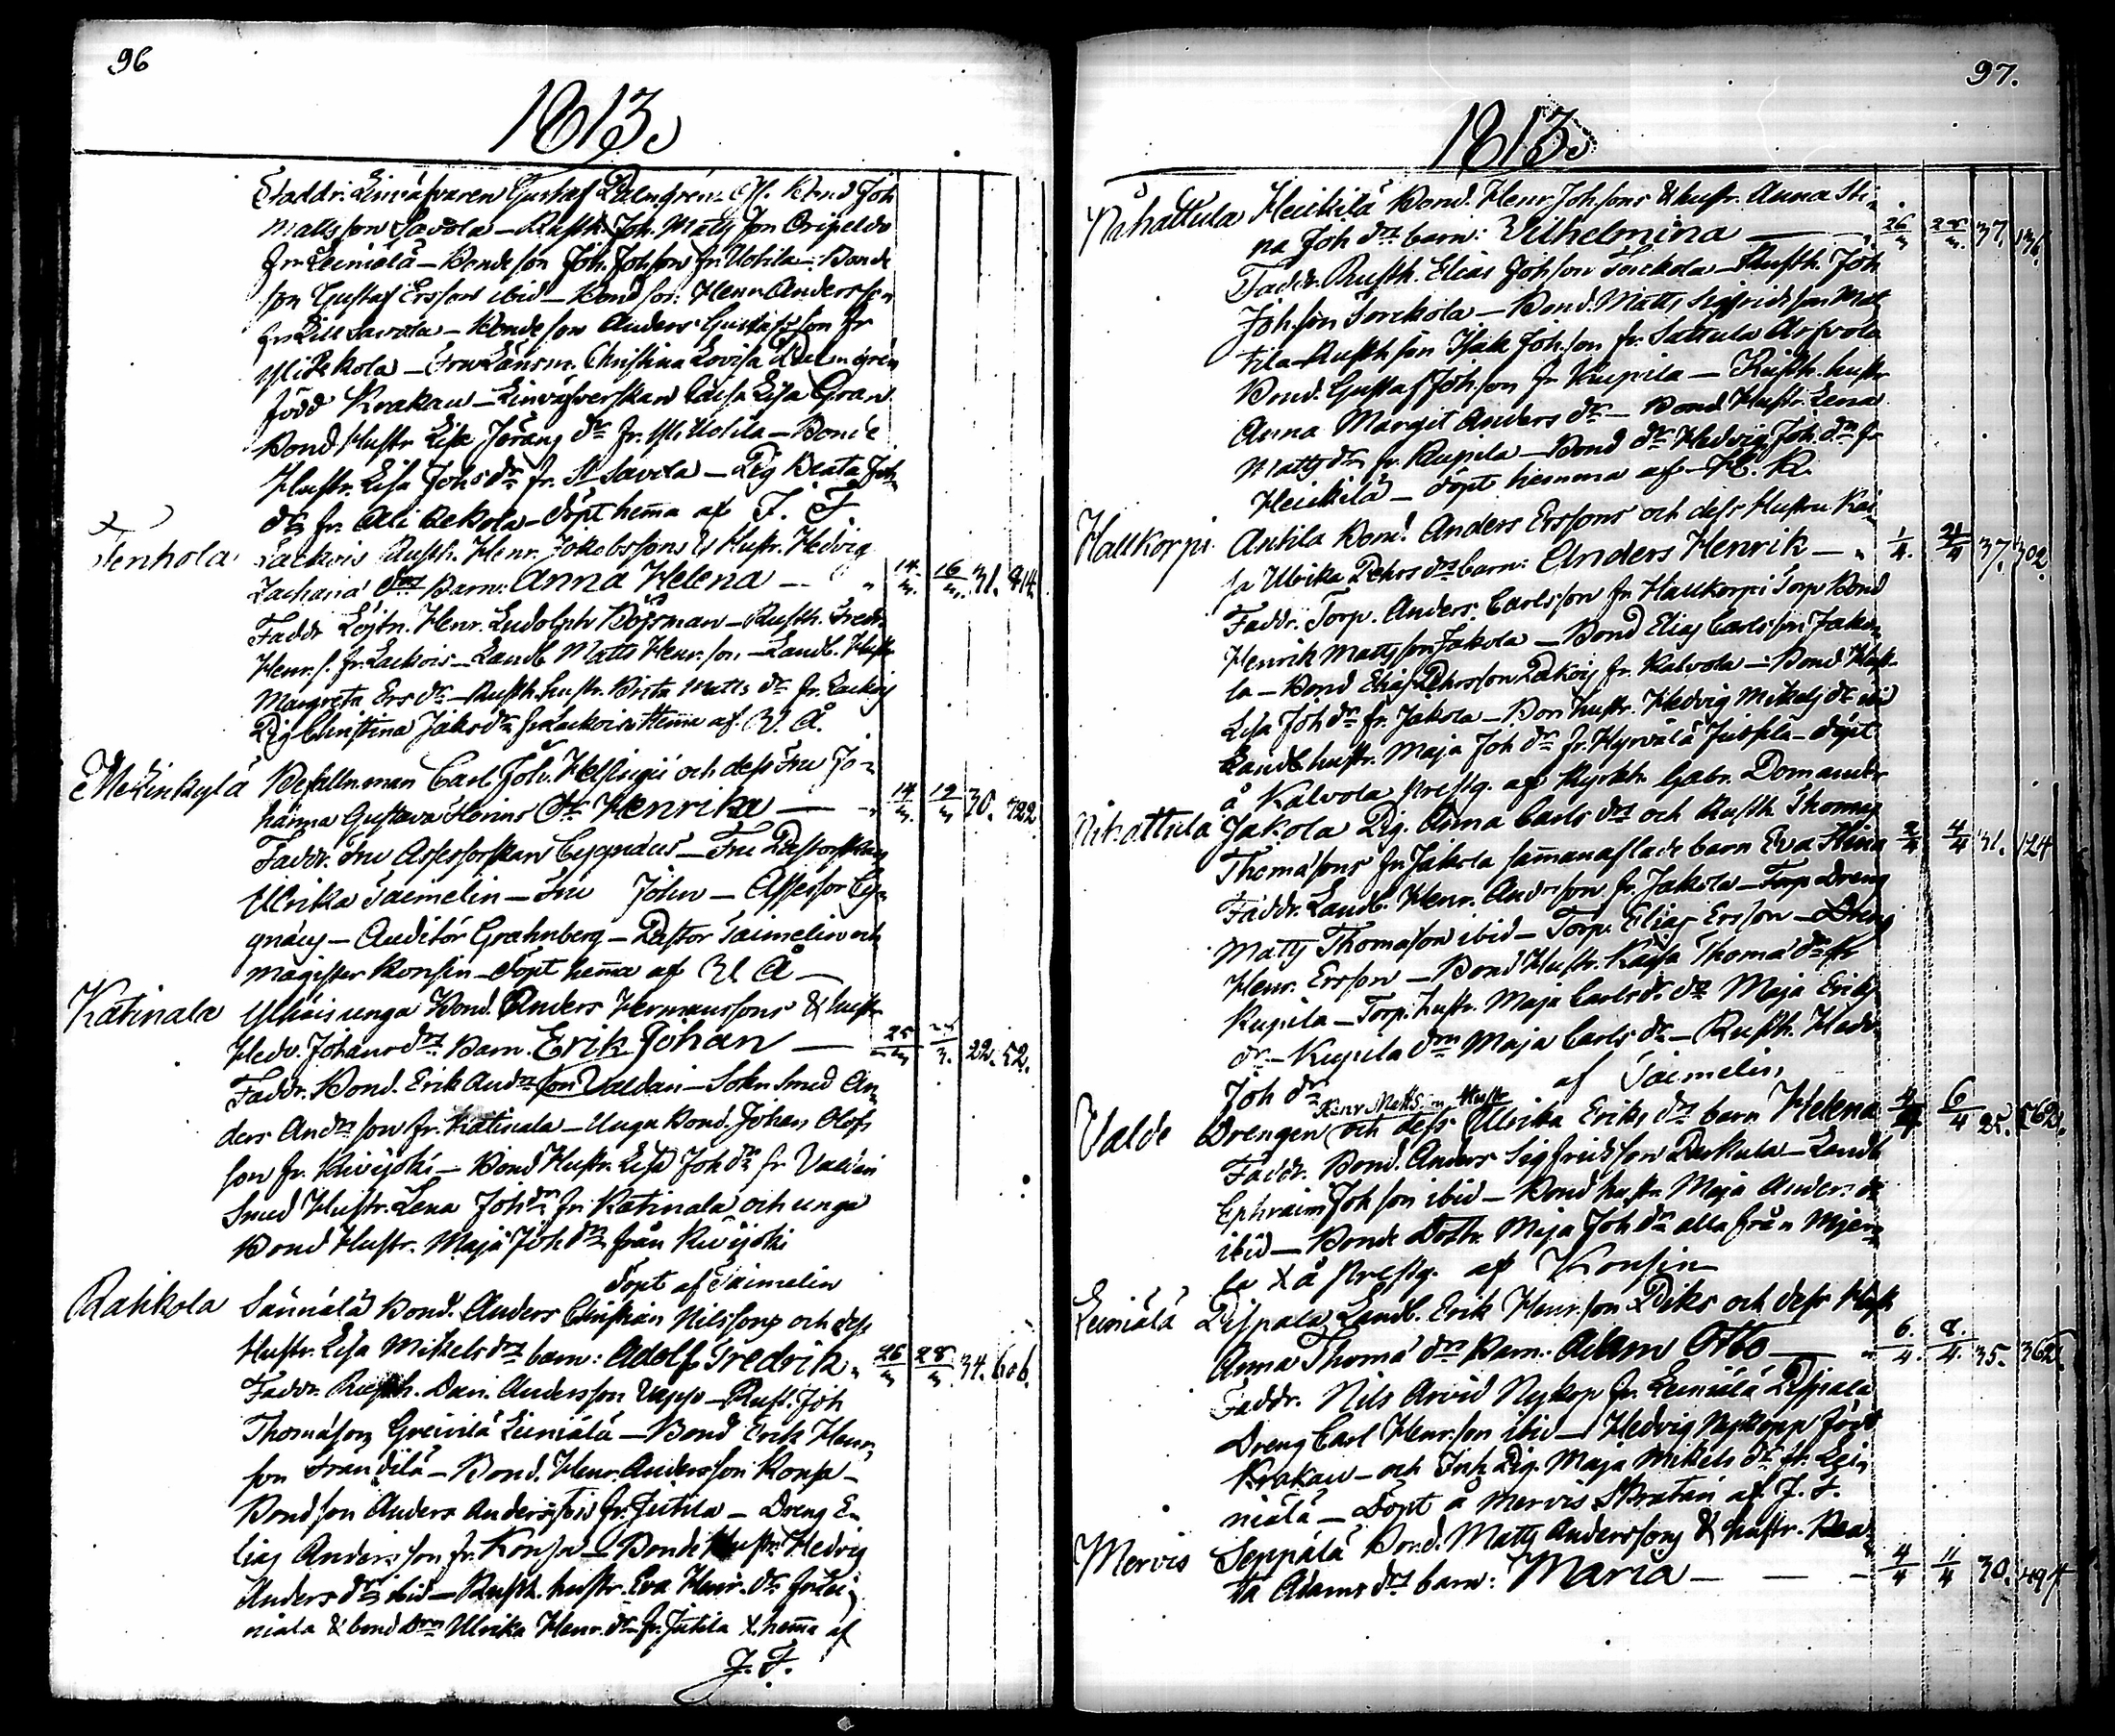 96
1813.
Faddr. Linväfvaren Gustaf Palmgren Bond Joh
Matts son Savola – Rusth. Joh. Matts son
fr Leiniälä – Bonde son Joh. Johson fr Uotila – Bonde
son Gustaf Ersson ibid – Bond son Henr Andersson
fr Lill Savola – Bonde son Anders Gustafsson fr
– Fru Länsm. Christina Lovisa Palmgren
född Krakau – Linväfverskan Caisa Lisa Gran
Bond Hustr Lisa Jörans dr fr. Uotila – Bonde
Hustr. Lisa Johs dr fr. St Savola – Pig Beata Joh
dr fr. Ali Rekola – döpt hem̄a af J. F
Tenhola Lackois Rusth. Henr. Jakobssons & Hustr. Hedvig
Zacharia drs Barn: Anna Helena — " 14/3. 16/3. 31. 414
Faddr Löjtn. Henr. Ludolph Börsman – Rusth. Fredr.
Henr. s. fr. Lackois – Landb. Matts Henr. son – Landb. Hustr
Margreta Ers dr – Rusth. hustr. Brita Matts dr fr. Lackois
Pig Christina Jaks dr fr Lackois Hem̄a af. Å.
Mekinkylä Befalln.man Carl Joh. Helsingii och dess Fru Jo-
hanna Gustava Florins dr Henrika — 14/3. 19/3 30. 722
Faddr. Fru Assessorskan Cygnæus – Fru Pastorskan
Ulrika Taimelin – Fru John – Assessor Cy-
gnæus – Auditör Grahnberg – Pastor Taimelin och
Magister Konsin – döpt hem̄a af Å –
Katinala Ylhäis unga Bond. Anders Hermanssons & hustr
Hedv. Johans drs Barn. Erik Johan — 25/3 3. 22. 52.
Faddr. Bond. Erik Andrs son Valdai – Sokn Smed An-
ders Andrs son fr. Katinala – Unga Bond. Johan Olofs
son fr. Kivijoki – Bond Hustr. Lisa Joh dr fr Valdai
Smed Hustr. Lena Joh dr fr Katinala och unga
Bond Hustr. Maja Joh dr från Kivijoki
döpt af Taimelin
Rahkola Sauniälä Bond. Anders Christian Nilssons och dess
Hustr. Lisa Mikels drs barn: Adolf Fredrik " 26/3 28/3. 34. 606.
Faddr. Rusth. Dan. Andersson Uappo – Rust. Joh
Thomason Greivilä Leiniälä – Bond Erik Henr-
son Frandilä – Bond. Henr. Andersson Konsa –
Bondson Anders Andersson fr. Jutila – Dreng E-
lias Andersson fr. Konsa – Bonde Hustr. Hedvig
Anders dr ibid – Rusth. hustr. Eva Henr. dr fr Lei-
niala & bond drn Ulrika Henr. dr fr. Jutila X hem̄a af
J. F.
97.
1813.
Nihattula Heickilä Bond. Henr. Joh.sons & hustr. Anna Sti-
na Joh drs barn: Vilhelmina — 26/3 3. 37. 136.
Faddr. Rusth. Elias Johson Torckola – Rusth. Joh
Joh.son Torckola – Bond. Matts Sigfridsson Mat
tila – Rusth son Isak Joh.son fr. Sattula Arfvola
Bond. Gustaf Joh.son fr Kupila – Rusth. hustr
Anna Margit Anders dr – Bond Hustr. Lena
Matts dr fr. Kupila – Bond dr Hedvig Joh. dr fr
Heickilä – döpt hemma af H. R.
Hallkorpi. Antila Bond. Anders Erssons och dess Hustru Kai-
sa Ulrika Pehrs drs barn: Anders Henrik — 1/4. 2/4 37. 302.
Faddr. Torp. Anders Carlsson fr Hallkorpi Torp Bond
Henrik Matts son Jakola – Bond Elias Carlsson Jako-
la – Bond Elias Pehrsson fr. Kalvola – Bond Hustr.
Lisa Joh dr fr. Jakola – Bon hustr. Hedvig Mikels dr ibid
Landb. hustr. Maja Joh dr fr. Hyrvälä Jusskla – döpt
å Kalvola prestg. af Kyrkh. Gabr. Domander
Nihattula Jakola Pig. Anna Carls drs och Rusth Thomas
Thomasons fr. Jakola sam̄anaflade barn Eva Stina 2/4 4/4 31. 124
Faddr. Landb. Henr. Andersson fr. Jakola – Torp Dreng
Matts Thomason ibid – Torp. Elias Ersson – Dreng
Henr. Ersson – Bond Hustr. Kaisa Thoma dr fr
Kupila – Torp. hustr. Maja Carls dr Maja Eriks
dr – Kupila drn Maja Carls dr – Rusth. Hedv
Joh dr af Taimelin,
Henr Mattsson Hustr
Valde Drengen och dess Ulrika Eriks drs barn Helena 6/4 25. 562.
Faddr. Bond. Anders Sigfridsson Parkula – Landb
Ephraim Johson ibid – Bond hustr Maja Anders dr
ibid – Bonde Dottr. Maja Joh dr alla från Mjer-
la X å prestg. af Konsin
Leiniälä Pispala Landb. Erik Henr.son Piks och dess Hustr
Anna Thoma drs Barn. Adam Otto — 6./4. 8./4. 35. 362.
Faddr. Nils Arvid Nykop fr. Leiniälä Pispala
Dreng Carl Henr.son ibid – Hedvig Nykopp född
Krakau – och Inh. Pig. Maja Mikels dr fr. Lei-
niälä – Döpt å Mervis Stratan af J. F.
Mervis Seppälä Bond. Matts Anderssons & hustr. Bea-
ta Adams drs barn: Maria — 4/4 11/4 30. 494